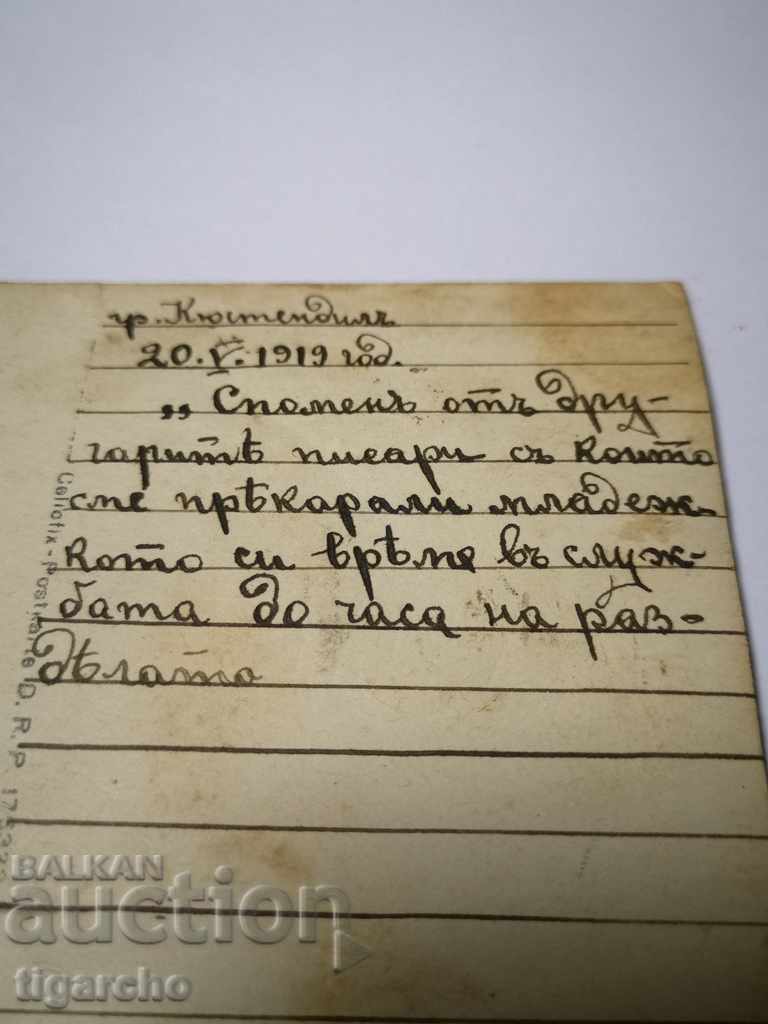 гр. Кюстендилъ
20. V. 1919 год.
„ Споменъ отъ дру-
гаритѣ писари съ които
сме прѣкарали младеж-
кото си врѣме въ служ-
бата до часа на раз-
дѣлата
Celiofix-Postkarte D. R. P.
BALKAN
auction
tigarcho